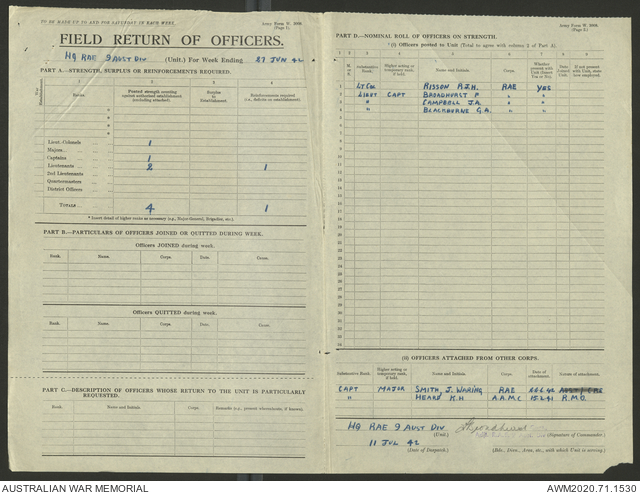 TO BE MADE UP TO AND FOR SATURDAY IN EACH WEEK.
Army Form W. 3008.
(Page 1)
FIELD RETURN OF OFFICERS.
HQ RAE 9 AUST DIV (Unit.) For Week Ending 27 JUN 42
PART A.—STRENGTH, SURPLUS OR REINFORCEMENTS REQUIRED.
1 2 3 4
Ranks. Posted strength counting against authorised establishment. (excluding attached). Surplus to Establishment. Reinforcements required (i.e., Below on establishment)
Lieut.-Colonels 1
Majors
Captains 1
Lieutenants 2 1
2nd Lieutenants
Quartermasters
District Officers
TOTALS 4 1
* Insert detail of higher ranks as necessary (e.g., Major-General, Brigadier, etc.)
PART B.—PARTICULARS OF OFFICERS JOINED OR QUITTED DURING WEEK.
Officers JOINED during week.
Rank. Name. Corps. Date. Cause.
Officers QUITTED during week.
Rank. Name. Corps. Date. Cause.
PART C.—DESCRIPTION OF OFFICERS WHOSE RETURN TO THE UNIT IS PARTICULARLY
REQUESTED.
Rank. Name and Initials. Corps. Remarks (e.g., present whereabouts, if known).
Army Form W. 3008.
(Page 2.)
PART D.—NOMINAL ROLL OF OFFICERS ON STRENGTH.
(i) Officers posted to Unit (Total to agree with column 2 of Part A).
1 2 3 4 5 6 7 8 9
Substantive Rank. Higher acting or temporary rank, if held. Name and Initials. Corps. Whether present with Unit (Insert Yes or No). If not present with Unit, state how employed.
1 LT COL RISSON R.J.H. RAE YES
2 LIEUT CAPT BROADHURST F. " "
3 " CAMPBELL J.A. " "
4 " BLACKBURNE G.A. " "
(ii) OFFICERS ATTACHED FROM OTHER CORPS.
Substantive Rank. Higher acting or temporary rank, if held. Name and Initials. Corps. Date of attachment. Nature of attachment.
CAPT MAJOR SMITH, J. WARING RAE
" HEARD K.H A.A.M.C 15.2.41 R.M.O.
HQ RAE 9 AUST DIV
(Unit.) (Signature of Commander.)
11 JUL 42
(Date of Despatch.) (Bde., Divn., Area, etc., with which Unit is serving.)
AUSTRALIAN WAR MEMORIAL AWM2020.71.1530